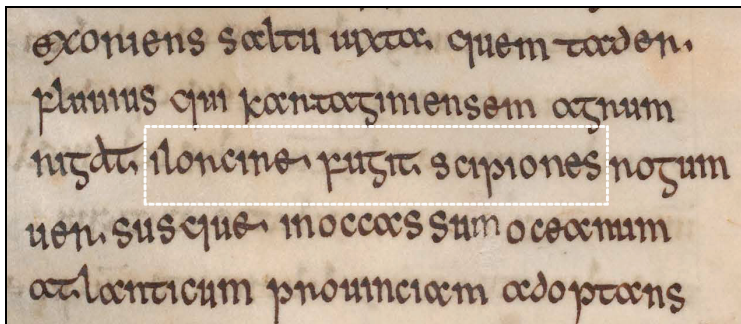 exoriens saltu uxta. quem tader.
fluuius qui kartaginiensem agrum
rigat. ilorcine. fugit. scipiones rogum
uer. sus que. inoccas sum oceanum
at.lanticum prouinciam adoptans